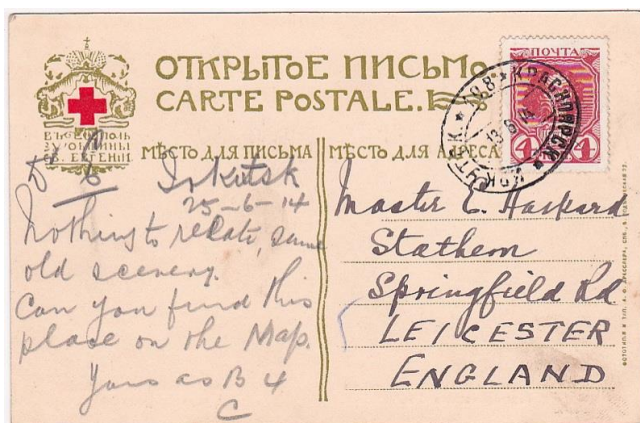 ОТКРЫТОЕ ПИСЬМО
CARTE POSTALE.
ВЪ ПОЛЬЗУ ОБЩИНЫ
СВ. ЕВГЕНІИ
ПОЧТА
4 4
КРАСНОЯРСК
108
13 6 14
МѢСТО ДЛЯ ПИСЬМА
МѢСТО ДЛЯ АДРЕСА
Irkutsk
25-6-14
Nothing to relate, same
old scenery.
Can you find this
place on the Map.
Yours as B 4
C
Master C. Haxford
Stathern
Springfield Rd
LEICESTER
ENGLAND